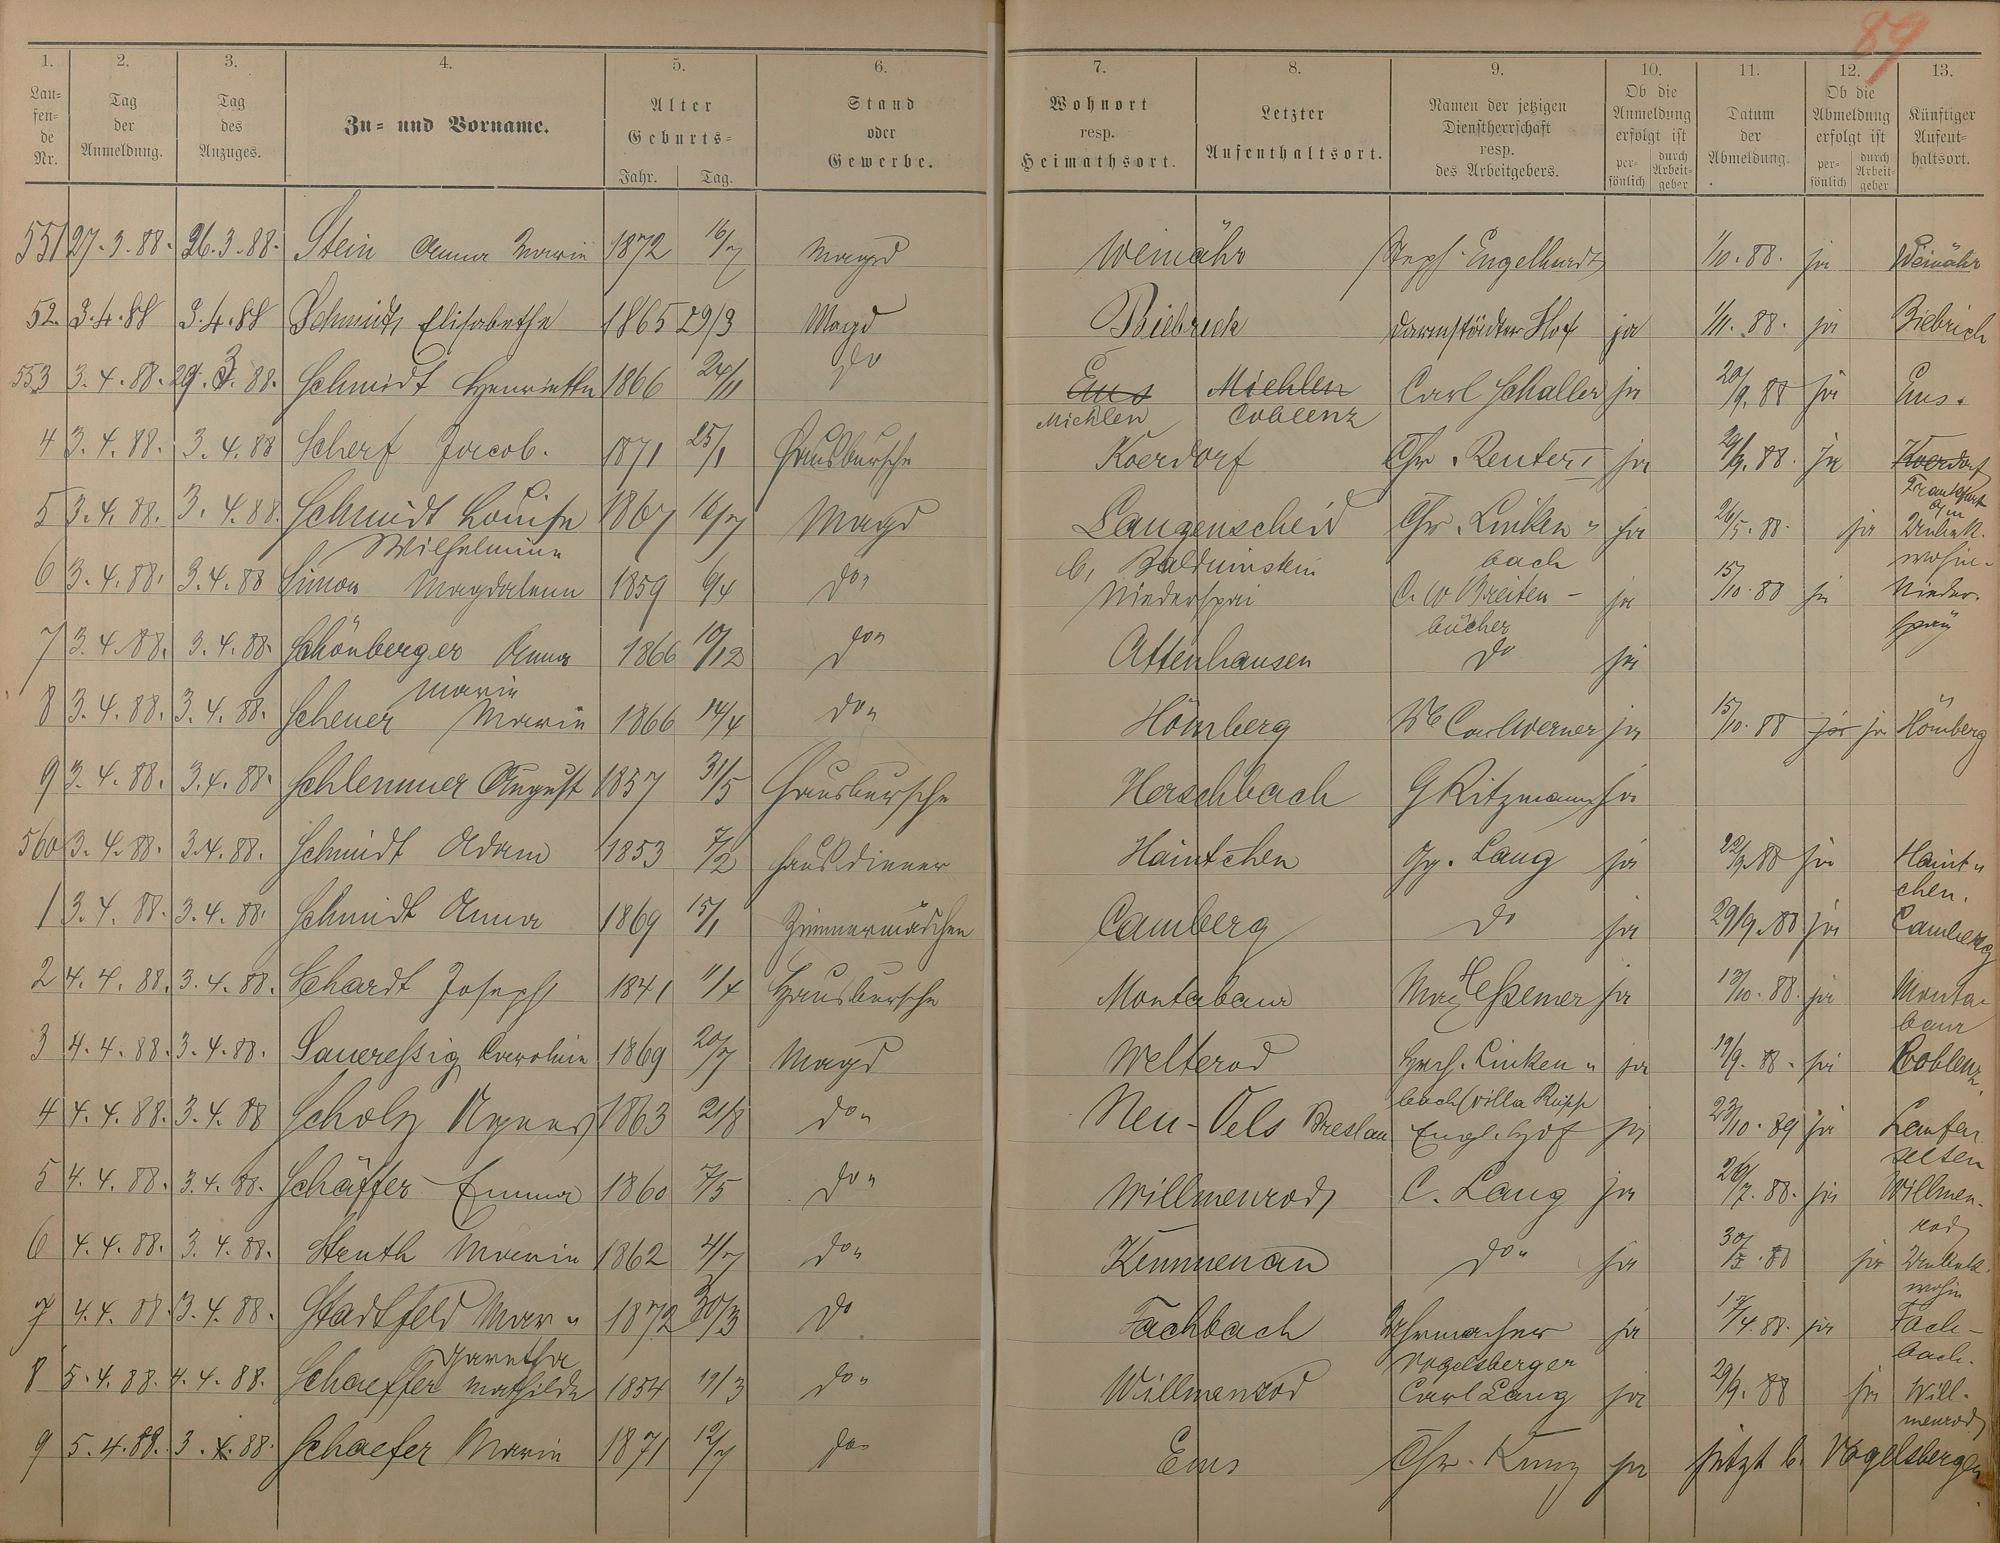 89
1. 2. 3. 4. 5. 6. 7. 8. 9. 10. 11. 12. 13.
Lau=fen=de Nr. Tag der Anmeldung. Tag des Anzuges. Zu= und Vorname. Alter Geburts= Jahr. Tag. Stand oder Gewerbe. Wohnort resp. Heimathsort. Letzter Aufenthaltsort. Namen der jetzigen Dienstherrschaft resp. des Arbeitgebers. Ob die Anmeldung erfolgt ist per=sönlich durch Arbeit=geber Datum der Abmeldung. Ob die Abmeldung erfolgt ist per=sönlich durch Arbeit=geber Künftiger Aufent=haltsort.
551 27.3.88. 26.3.88. Stein Anna Marie 1872 16/7 Magd Weinähr Steph. Engelhardt 1/10.88. ja Weinähr
52. 3.4.88 3.4.88 Schmidt Elisabethe 1865 29/3 Magd Biebrich Darmstädter Hof ja 1/11.88. ja Biebrich
553 3.4.88. 29.3.88. Schmidt Henriette 1866 24/11 do Ems Miehlen Carl Schaller ja 20/9.88 ja Ems.
Miehlen Coblenz
4 3.4.88. 3.4.88 Scherf Jacob. 1871 25/1 Hausbursche Koerdorf Chr. Reuter I ja 29/9.88. ja Koerdorf
Frankfurt a/m
5 3.4.88. 3.4.88. Schmidt Louise 1867 16/7 Magd Langenscheid Chr. Linken " ja 26/5.88. ja Unbek.
Wilhelmine b, Balduinstein bach wohin.
6 3.4.88. 3.4.88 Simon Magdalena 1859 6/4 do" Niederspai C. W Breiten - ja 15/10.88 ja Nieder.
bücher spay
7 3.4.88. 3.4.88. Schönberger Anna 1866 10/12 do" Attenhausen do ja
Marie
8 3.4.88. 3.4.88. Scheuer Marie 1866 14/4 do" Hömberg We Carl Werner ja 15/10.88 ja ja Hömberg
9 3.4.88. 3.4.88. Schlemmer August 1857 31/5 Hausbursche Herschbach G Ritzmann ja
560 3.4.88. 3.4.88. Schmidt Adam 1853 7/2 Hausdiener Haintchen Gg. Lang ja 22/9.88 ja Haint"
chen.
1 3.4.88. 3.4.88. Schmidt Anna 1869 15/1 Zimmermädchen Camberg do ja 29/9.88 ja Camberg
2 4.4.88. 3.4.88. Schardt Joseph 1841 11/4 Hausbursche Montabaur Max Heßemer ja 13/10.88. ja Monta-
baur
3 4.4.88. 3.4.88. Saueressig Caroline 1869 20/7 Magd Welterod Hrch. Linken " ja 19/9.88. ja Coblenz
bach (villa Rupp
4 4.4.88. 3.4.88 Scholz Agnes 1863 21/8 do" Neu-Oels Breslau Engl. Hof ja 23/10.89 ja Laufen
selten
5 4.4.88. 3.4.88. Schäffer Emma 1860 7/5 do" Willmenrod C. Lang ja 26/7.88. ja Willmen-
rod
6 4.4.88. 3.4.88. Struth Marie 1862 4/7 do" Kemmenau do" ja ja Unbek.
wohin
7 4.4.88. 3.4.88. Stadtfeld Mar" 1872 30/3 do Fachbach Uhrmacher ja ja Fach-
garetha Vogelsberger bach.
8 5.4.88. 4.4.88. Schaeffer Mathilde 1854 19/3 do" Willmenrod Carl Lang ja 29/9.88 ja Will-
menrod
9 5.4.88. 3.4.88. Schaefer Marie 1871 12/7 do" Ems Chr. Kunz ja jetzt b. Vogelsberger